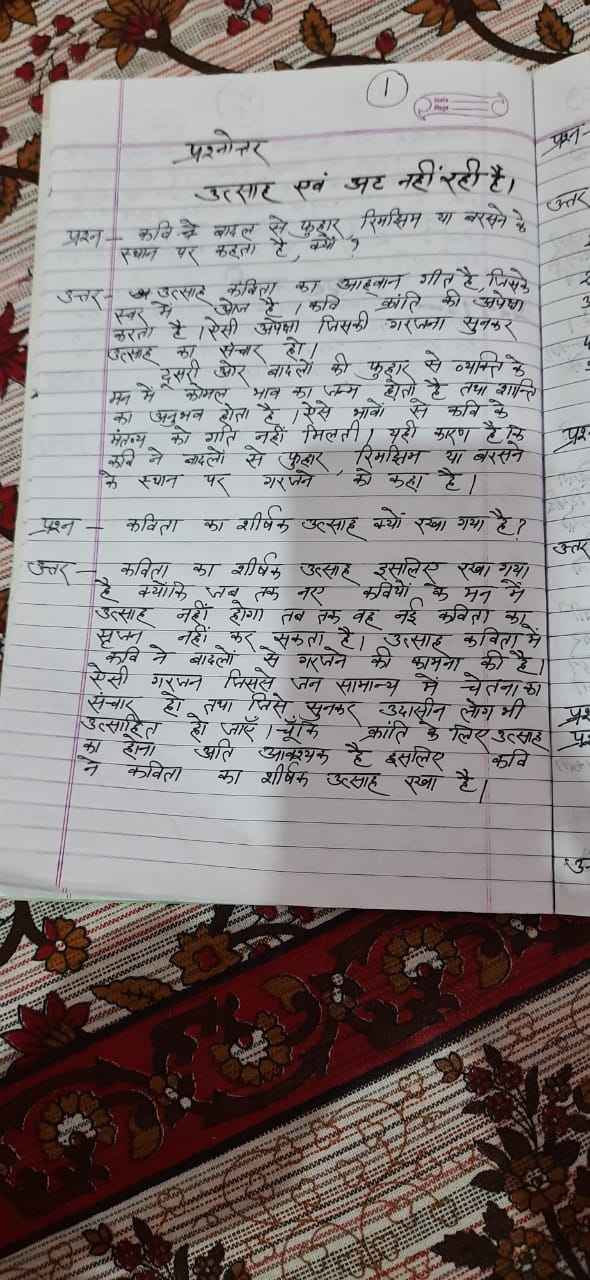 1
Date
Page
प्रश्नोत्तर
उत्साह एवं अट नहीं रही है।
प्रश्न – कवि ने बादल से फुहार, रिमझिम या बरसने के
स्थान पर कहता है, क्यों ?
उत्तर – उत्साह कविता का आह्वान गीत है, जिसके
स्वर में ओज है । कवि क्रांति की अपेक्षा
करता है । ऐसी अपेक्षा जिसकी गरजना सुनकर
उत्साह का संचार हो।
दूसरी ओर बादलों की फुहार से व्यक्ति के
मन में कोमल भाव का जन्म होता है तथा शान्ति
का अनुभव होता है । ऐसे भावों से कवि के
मंतव्य को गति नहीं मिलती। यही कारण है कि
कवि ने बादलों से फुहार, रिमझिम या बरसने
के स्थान पर गरजने को कहा है।
प्रश्न – कविता का शीर्षक उत्साह क्यों रखा गया है ?
उत्तर – कविता का शीर्षक उत्साह इसलिए रखा गया
है क्योंकि जब तक नए कवियों के मन में
उत्साह नहीं होगा तब तक वह नई कविता का
सृजन नहीं कर सकता है। उत्साह कविता में
कवि ने बादलों से गरजने की कामना की है।
ऐसी गरजन जिससे जन सामान्य में चेतना का
संचार हो तथा जिसे सुनकर उदासीन लोग भी
उत्साहित हो जाएँ । चूँकि क्रांति के लिए उत्साह
का होना अति आवश्यक है इसलिए कवि
ने कविता का शीर्षक उत्साह रखा है।
प्रश्न –
उत्तर
प्रश्न
उत्तर
प्रश्न
प्रश्न